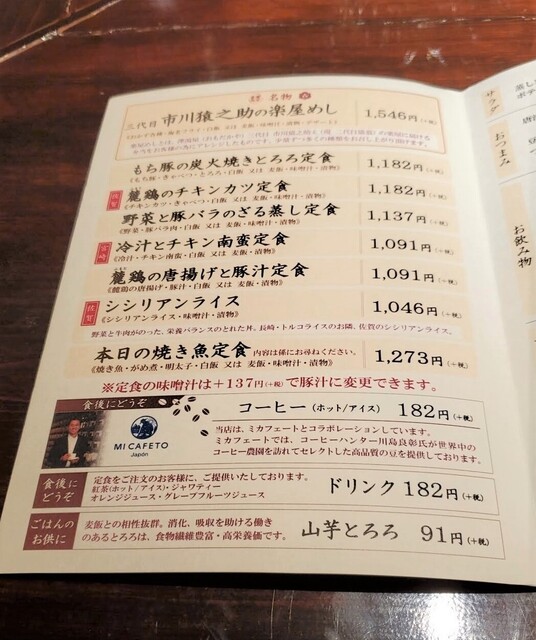 名物
三代目 市川猿之助の楽屋めし 1,546円(+税)
もち豚の炭火焼きとろろ定食 1,182円(+税)
《もち豚・きゃべつ・とろろ・白飯 又は 麦飯・味噌汁・漬物》
佐賀 麓鶏のチキンカツ定食 1,182円(+税)
《チキンカツ・きゃべつ・白飯 又は 麦飯・味噌汁・漬物》
野菜と豚バラのざる蒸し定食 1,137円(+税)
《野菜・豚バラ肉・白飯 又は 麦飯・味噌汁・漬物》
宮崎 冷汁とチキン南蛮定食 1,091円(+税)
《冷汁・チキン南蛮・白飯 又は 麦飯・漬物》
麓鶏の唐揚げと豚汁定食 1,091円(+税)
《麓鶏の唐揚げ・豚汁・白飯 又は 麦飯・漬物》
佐賀 シシリアンライス 1,046円(+税)
《シシリアンライス・味噌汁・漬物》
野菜と牛肉がのった、栄養バランスのとれた丼。長崎・トルコライスのお隣、佐賀のシシリアンライス。
本日の焼き魚定食 内容は係にお尋ねください。 1,273円(+税)
《焼き魚・がめ煮・明太子・白飯 又は 麦飯・味噌汁・漬物》
※定食の味噌汁は+137円(+税)で豚汁に変更できます。
食後にどうぞ
MI CAFETO
Japón
コーヒー(ホット/アイス) 182円(+税)
当店は、ミカフェートとコラボレーションしています。
ミカフェートでは、コーヒーハンター川島良彰氏が世界中の
コーヒー農園を訪れてセレクトした高品質の豆を提供しております。
食後に
どうぞ
定食をご注文のお客様に、ご提供いたしております。
紅茶(ホット/アイス)・ジャワティー
オレンジジュース・グレープフルーツジュース
ドリンク 182円(+税)
ごはんの
お供に
麦飯との相性抜群。消化、吸収を助ける働き
のあるとろろは、食物繊維豊富・高栄養価です。
山芋とろろ 91円(+税)
サラダ
おつまみ
お飲み物